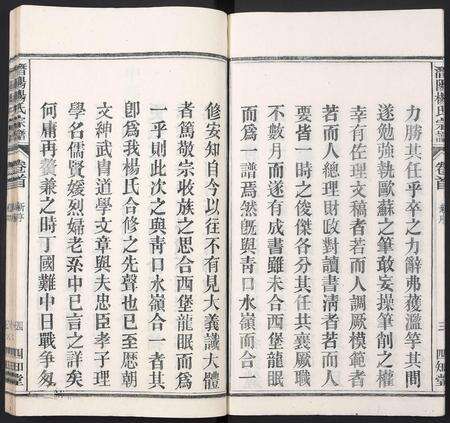 潛陽楊氏宗譜
卷首
新序
三
四知堂
力勝其任乎卒之力辭弗獲濫竽其間
遂勉強執歐蘇之筆敢妄操筆削之權
幸有佐理文稿者若而人調厥模範者
若而人總理財政對讀書清者若而人
要皆一時之俊傑各分其任共襄厥職
不數月而遂有成書雖未合西堡龍眠
而為一譜焉然既與靑口水嶺而合一
修安知自今以往不有見大義識大體
者篤敬宗收族之思合西堡龍眠而為
一乎則此次之與靑口水嶺合一者其
卽為我楊氏合修之先聲也巳至歷朝
文紳武冑道學文章與夫忠臣孝子理
學名儒賢媛烈婦老泉中巳言之詳矣
何庸再贅兼之時丁國難中日戰爭匆
潛陽楊氏宗譜
卷首
新序
四知堂